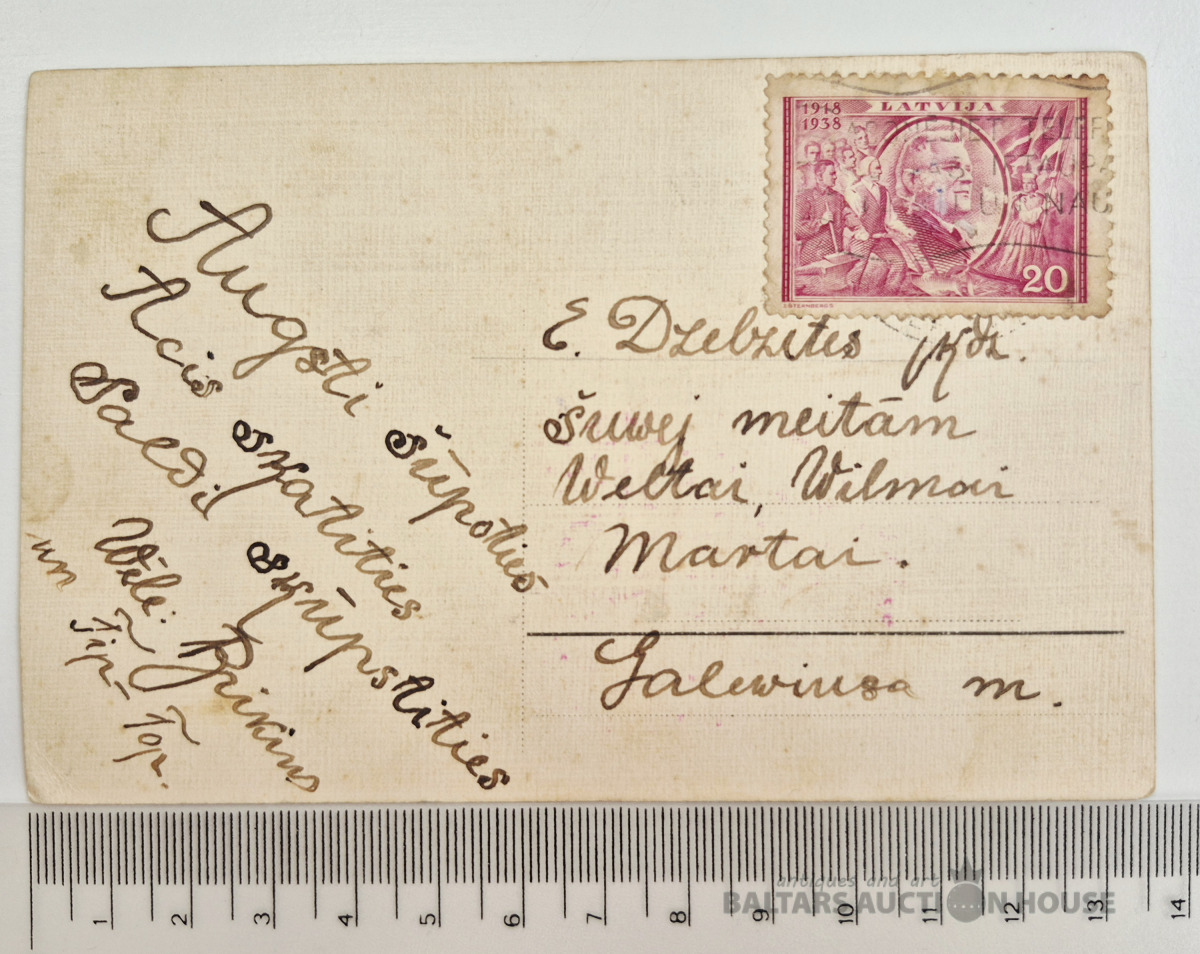 Augsti šūpoties
Acis skatities
Saldi skūpstities
Wēlē. Brikins
un Tip-Top.
1918
1938
LATVIJA
20
E. Dzelzites kdz.
šuwej meitām
Weltai, Wilmai
Martai.
Galewiusa m.
1 2 3 4 5 6 7 8 9 10 11 12 13 14
antiques and art
BALTARS AUCTION HOUSE